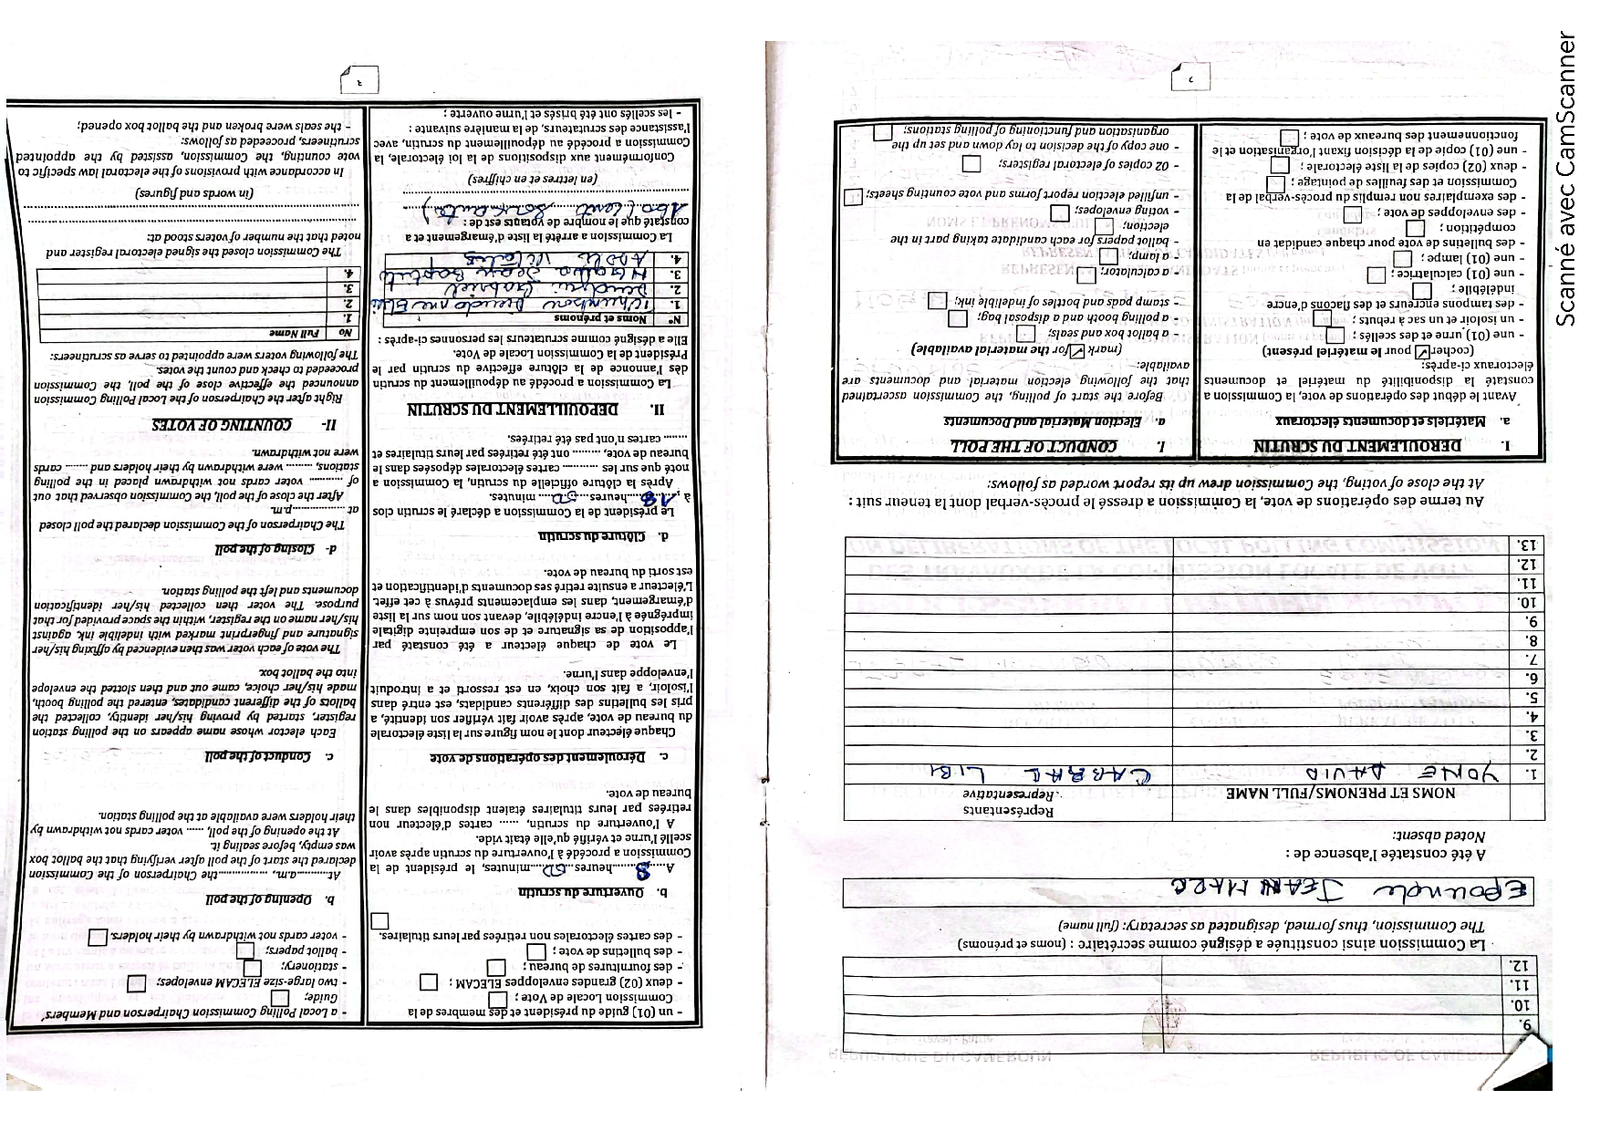 9.
10.
11.
12.
La Commission ainsi constituée a désigné comme secrétaire : (noms et prénoms)
The Commission, thus formed, designated as secretary: (full name)
Epounde JEAN MARC
A été constatée l'absence de :
Noted absent:
NOMS ET PRENOMS/FULL NAME
Représentants
Representative
1. YONE DAVID CABRAL LIBI
2.
3.
4.
5.
6.
7.
8.
9.
10.
11.
12.
13.
Au terme des opérations de vote, la Commission a dressé le procès-verbal dont la teneur suit :
At the close of voting, the Commission drew up its report worded as follows:
I. DEROULEMENT DU SCRUTIN
a. Matériels et documents électoraux
Avant le début des opérations de vote, la Commission a
constaté la disponibilité du matériel et documents
électoraux ci-après:
(cocher pour le matériel présent)
- une (01) urne et des scellés ;
- un isoloir et un sac à rebuts ;
- des tampons encreurs et des flacons d'encre
indélébile ;
- une (01) calculatrice ;
- une (01) lampe ;
- des bulletins de vote pour chaque candidat en
compétition ;
- des enveloppes de vote ;
- des exemplaires non remplis du procès-verbal de la
Commission et des feuilles de pointage ;
- deux (02) copies de la liste électorale ;
- une (01) copie de la décision fixant l'organisation et le
fonctionnement des bureaux de vote ;
I. CONDUCT OF THE POLL
a. Election Material and Documents
Before the start of polling, the Commission ascertained
that the following election material and documents are
available:
(mark for the material available)
- a ballot box and seals;
- a polling booth and a disposal bag;
- stamp pads and bottles of indelible ink;
- a calculator;
- a lamp;
- ballot papers for each candidate taking part in the
election;
- voting envelopes;
- unfilled election report forms and vote counting sheets;
- 02 copies of electoral registers;
- one copy of the decision to lay down and set up the
organisation and functioning of polling stations;
2
- un (01) guide du président et des membres de la
Commission Locale de Vote ;
- deux (02) grandes enveloppes ELECAM ;
- des fournitures de bureau ;
- des bulletins de vote ;
- des cartes électorales non retirées par leurs titulaires.
b. Ouverture du scrutin
A......8......heures...00...minutes, le président de la
Commission a procédé à l'ouverture du scrutin après avoir
scellé l'urne et vérifié qu'elle était vide.
A l'ouverture du scrutin, ...... cartes d'électeur non
retirées par leurs titulaires étaient disponibles dans le
bureau de vote.
c. Déroulement des opérations de vote
Chaque électeur dont le nom figure sur la liste électorale
du bureau de vote, après avoir fait vérifier son identité, a
pris les bulletins des différents candidats, est entré dans
l'isoloir, a fait son choix, en est ressorti et a introduit
l'enveloppe dans l'urne.
Le vote de chaque électeur a été constaté par
l'apposition de sa signature et de son empreinte digitale
imprégnée à l'encre indélébile, devant son nom sur la liste
d'émargement, dans les emplacements prévus à cet effet.
L'électeur a ensuite retiré ses documents d'identification et
est sorti du bureau de vote.
d. Clôture du scrutin
Le président de la Commission a déclaré le scrutin clos
à ...18...heures...00... minutes.
Après la clôture officielle du scrutin, la Commission a
noté que sur les .......... cartes électorales déposées dans le
bureau de vote, ........ ont été retirées par leurs titulaires et
...... cartes n'ont pas été retirées.
II. DEPOUILLEMENT DU SCRUTIN
La Commission a procédé au dépouillement du scrutin
dès l'annonce de la clôture effective du scrutin par le
Président de la Commission Locale de Vote.
Elle a désigné comme scrutateurs les personnes ci-après :
N° Noms et prénoms
1. Dieudonné
2. Gabriel
3. Jean Baptiste
4.
La Commission a arrêté la liste d'émargement et a
constaté que le nombre de votants est de :
160 (cent soixante)
(en lettres et en chiffres)
Conformément aux dispositions de la loi électorale, la
Commission a procédé au dépouillement du scrutin, avec
l'assistance des scrutateurs, de la manière suivante :
- les scellés ont été brisés et l'urne ouverte ;
- a Local Polling Commission Chairperson and Members'
Guide;
- two large-size ELECAM envelopes;
- stationery;
- ballot papers;
- voter cards not withdrawn by their holders.
b. Opening of the poll
At..........a.m., ..............the Chairperson of the Commission
declared the start of the poll after verifying that the ballot box
was empty, before sealing it.
At the opening of the poll, ...... voter cards not withdrawn by
their holders were available at the polling station.
c. Conduct of the poll
Each elector whose name appears on the polling station
register, started by proving his/her identity, collected the
ballots of the different candidates, entered the polling booth,
made his/her choice, came out and then slotted the envelope
into the ballot box.
The vote of each voter was then evidenced by affixing his/her
signature and fingerprint marked with indelible ink, against
his/her name on the register, within the space provided for that
purpose. The voter then collected his/her identification
documents and left the polling station.
d- Closing of the poll
The Chairperson of the Commission declared the poll closed
at .................p.m.
After the close of the poll, the Commission observed that out
of .......... voter cards not withdrawn placed in the polling
stations, ........ were withdrawn by their holders and ....... cards
were not withdrawn.
II- COUNTING OF VOTES
Right after the Chairperson of the Local Polling Commission
announced the effective close of the poll, the Commission
proceeded to check and count the votes.
The following voters were appointed to serve as scrutineers:
No Full Name
1.
2.
3.
4.
The Commission closed the signed electoral register and
noted that the number of voters stood at:
(in words and figures)
In accordance with provisions of the electoral law specific to
vote counting, the Commission, assisted by the appointed
scrutineers, proceeded as follows:
- the seals were broken and the ballot box opened;
3
Scanné avec CamScanner